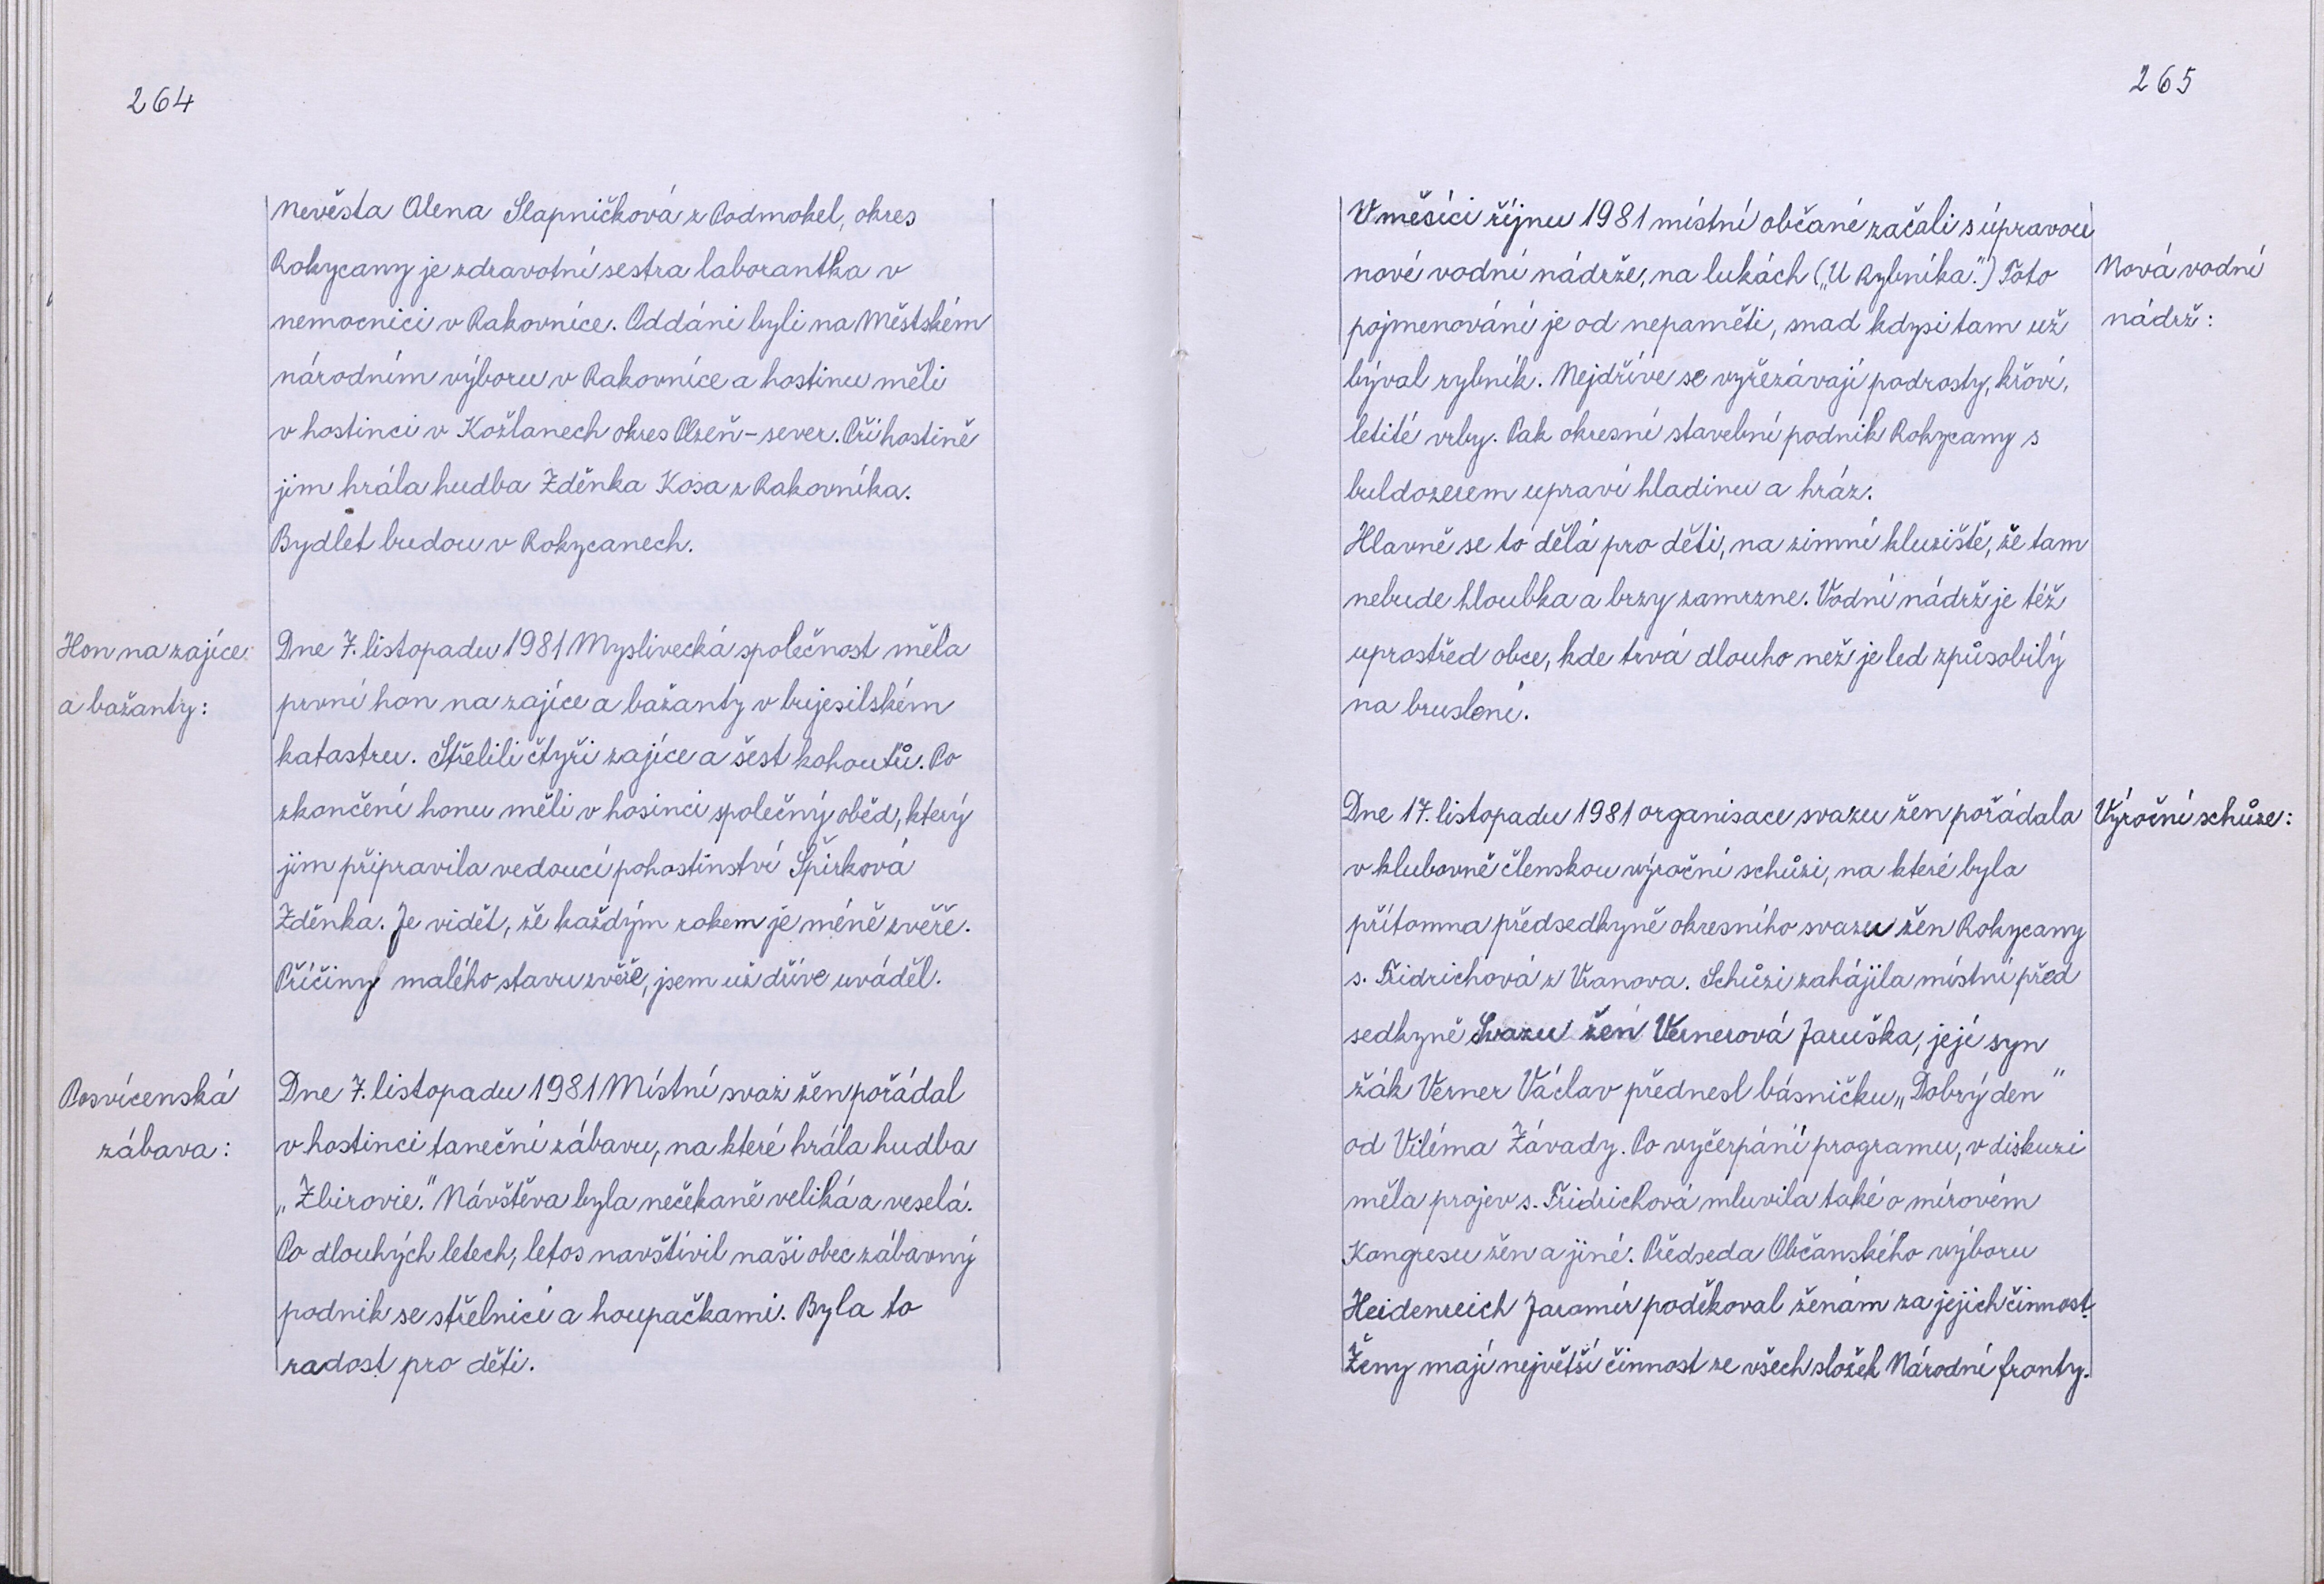 264
Nevěsta Alena Slapničková z Podmokel, okres
Rokycany je zdravotní sestra laborantka v
nemocnici v Rakovníce. Oddáni byli na Městském
národním výboru v Rakovníce a hostinu měli
v hostinci v Kožlanech okres Plzeň-sever. Při hostině
jim hrála hudba Zděnka Kosa z Rakovníka.
Bydlet budou v Rokycanech.
Hon na zajíce
a bažanty:
Dne 7. listopadu 1981 Myslivecká společnost měla
první hon na zajíce a bažanty v bujesilském
katastru. Střelili čtyři zajíce a šest kohoutů. Po
zkončení honu měli v hosinci společný oběd, který
jim připravila vedoucí pohostinství Špirková
Zděnka. Je vidět, že každým rokem je méně zvěře.
Příčiny malého stavu zvěře, jsem už dříve uváděl.
Posvícenská
zábava:
Dne 7. listopadu 1981 Místní svaz žen pořádal
v hostinci taneční zábavu, na které hrála hudba
„Zbirovie." Návštěva byla nečekaně veliká a veselá.
Po dlouhých letech, letos navštívil naši obec zábavný
podnik se střelnicí a houpačkami. Byla to
radost pro děti.
265
V měsíci říjnu 1981 místní občané začali s úpravou
nové vodní nádrže, na lukách („U Rybníka".) Toto
pojmenování je od nepaměti, snad kdysi tam už
býval rybník. Nejdříve se vyřezávají podrosty, křoví,
letité vrby. Pak okresní stavební podnik Rokycany s
buldozerem upraví hladinu a hráz.
Hlavně se to dělá pro děti, na zimní kluziště, že tam
nebude hloubka a brzy zamrzne. Vodní nádrž je též
uprostřed obce, kde trvá dlouho než je led způsobilý
na bruslení.
Nová vodní
nádrž:
Dne 17. listopadu 1981 organisace svazu žen pořádala
v klubovně členskou výroční schůzi, na které byla
přítomna předsedkyně okresního svazu žen Rokycany
s. Fridrichová z Vranova. Schůzi zahájila místní před
sedkyně Svazu žen Vernerová Jaruška, její syn
žák Verner Václav přednesl básničku „Dobrý den"
od Viléma Závady. Po vyčerpání programu, v diskuzi
měla projev s. Fridrichová mluvila také o mírovém
Kongresu žen a jiné. Předseda Občanského výboru
Heidenreich Jaromír poděkoval ženám za jejich činnost.
Ženy mají největší činnost ze všech složek Národní fronty.
Výroční schůze: